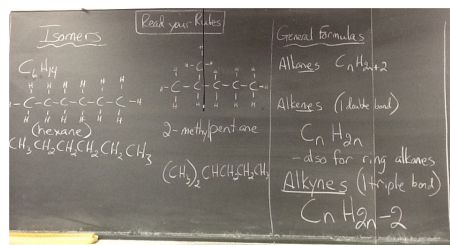 Isomers
C6H14
H H H H H H
H-C-C-C-C-C-C-H
H H H H H H
(hexane)
CH3CH2CH2CH2CH2CH3
Read your Rules
H
H-C-H
H H H H
H-C-C-C-C-C-H
H H H H H
2-methylpentane
(CH3)2CHCH2CH2CH3
General Formulas
Alkanes CnH2n+2
Alkenes (1 double bond)
CnH2n
- also for ring alkanes
Alkynes (1 triple bond)
CnH2n-2